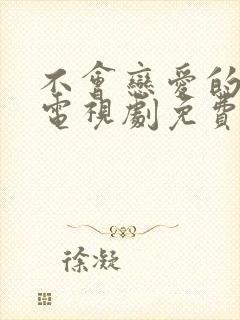 不會戀愛的
電視劇免費
徐凝